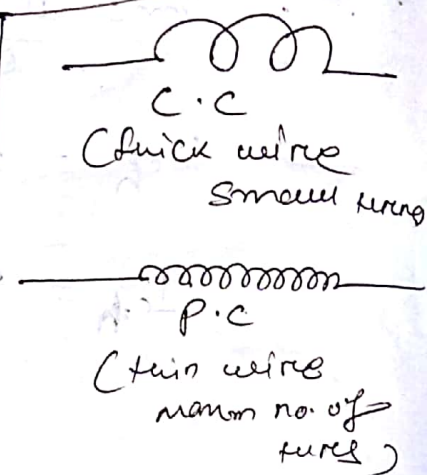 C.C
(thick wire
small turns
P.C
(thin wire
no. of
turns)